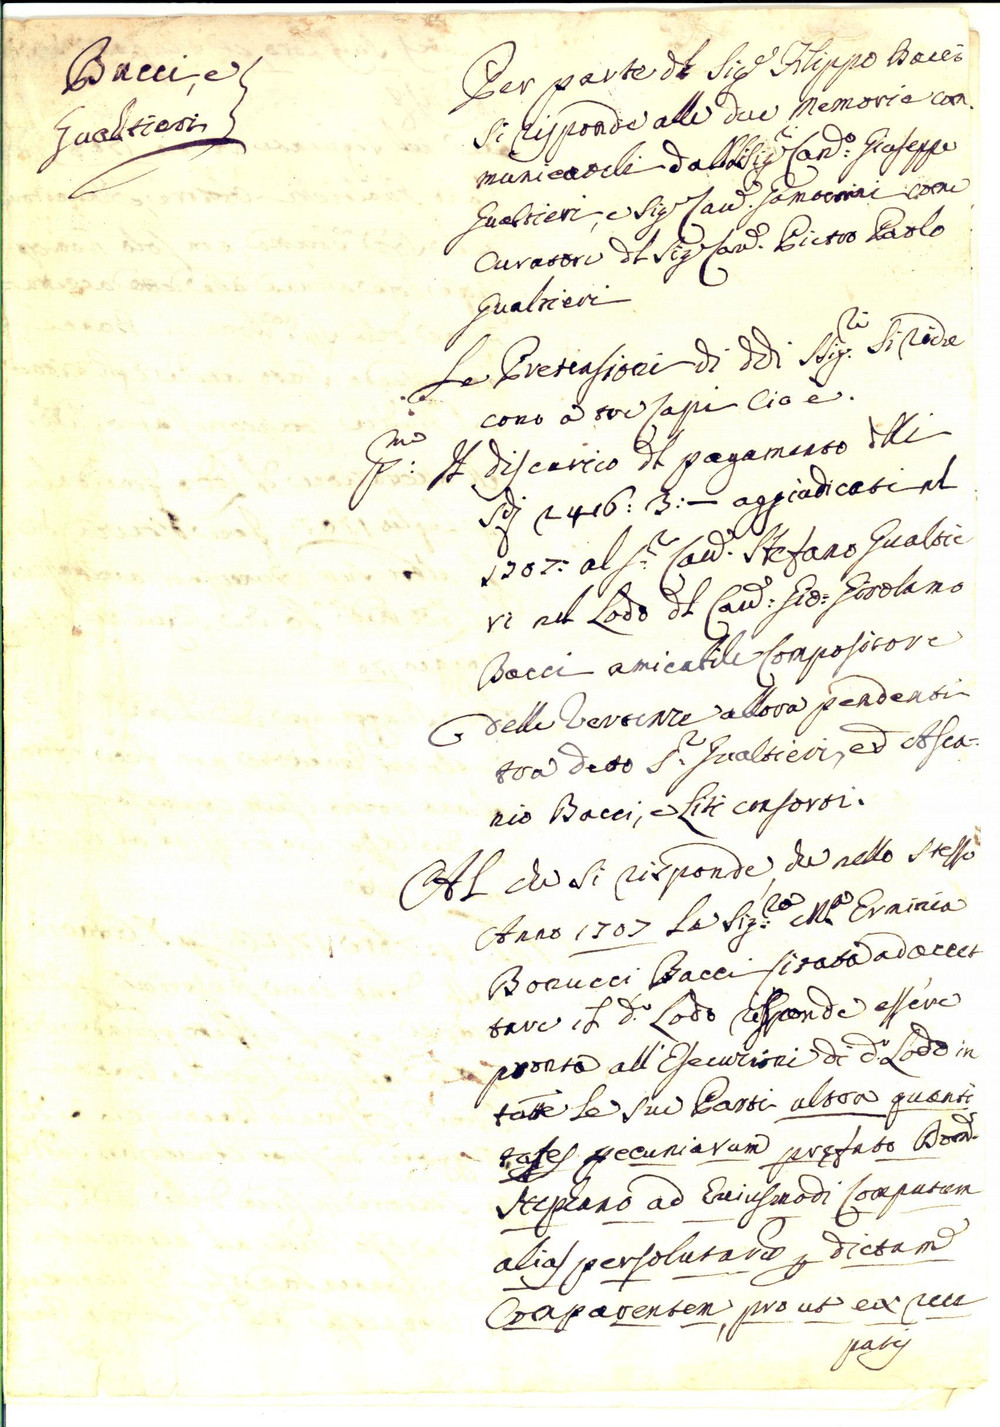 Bacci, e
Gualtieri
Per parte del Sig.e Filippo Bacci
si risponde alle due memorie com.
municateli dalli Sig.ri Cav.e Giuseppe
Gualtieri, e Sig.e Cav.e Gamurrini come
Curatore del Sig.e Cav.e Pietro Paolo
Gualtieri
Le Pretensioni di ddi SSig.ri si ridu
cono a tre capi cioè.
P.mo Il discarico del pagamento delli
Sdi 2416: 3:— aggiudicati nel
1707: al S.r Cav.e Stefano Gualtie
ri nel Lodo del Cav.e Gio: Girolamo
Bacci amicabile Compositore
delle Vertenze allora pendenti
tra detto S.r Gualtieri, ed Asca-
nio Bacci, e Liti consorti.
Al che si risponde, che nello stesso
Anno 1707 La Sig.ra M.a Erminia
Bonucci Bacci citata ad accet
tare il d.o Lodo risponde essere
pronta all'Esecuzioni di d.o Lodo in
tutte le sue Parti ultra quanti
tates pecuniarum prefato Dom.o
Stephano ad Euiusmodi Computum
alias persolutarum p dictam
Comparentem, prout ex rece
ptis